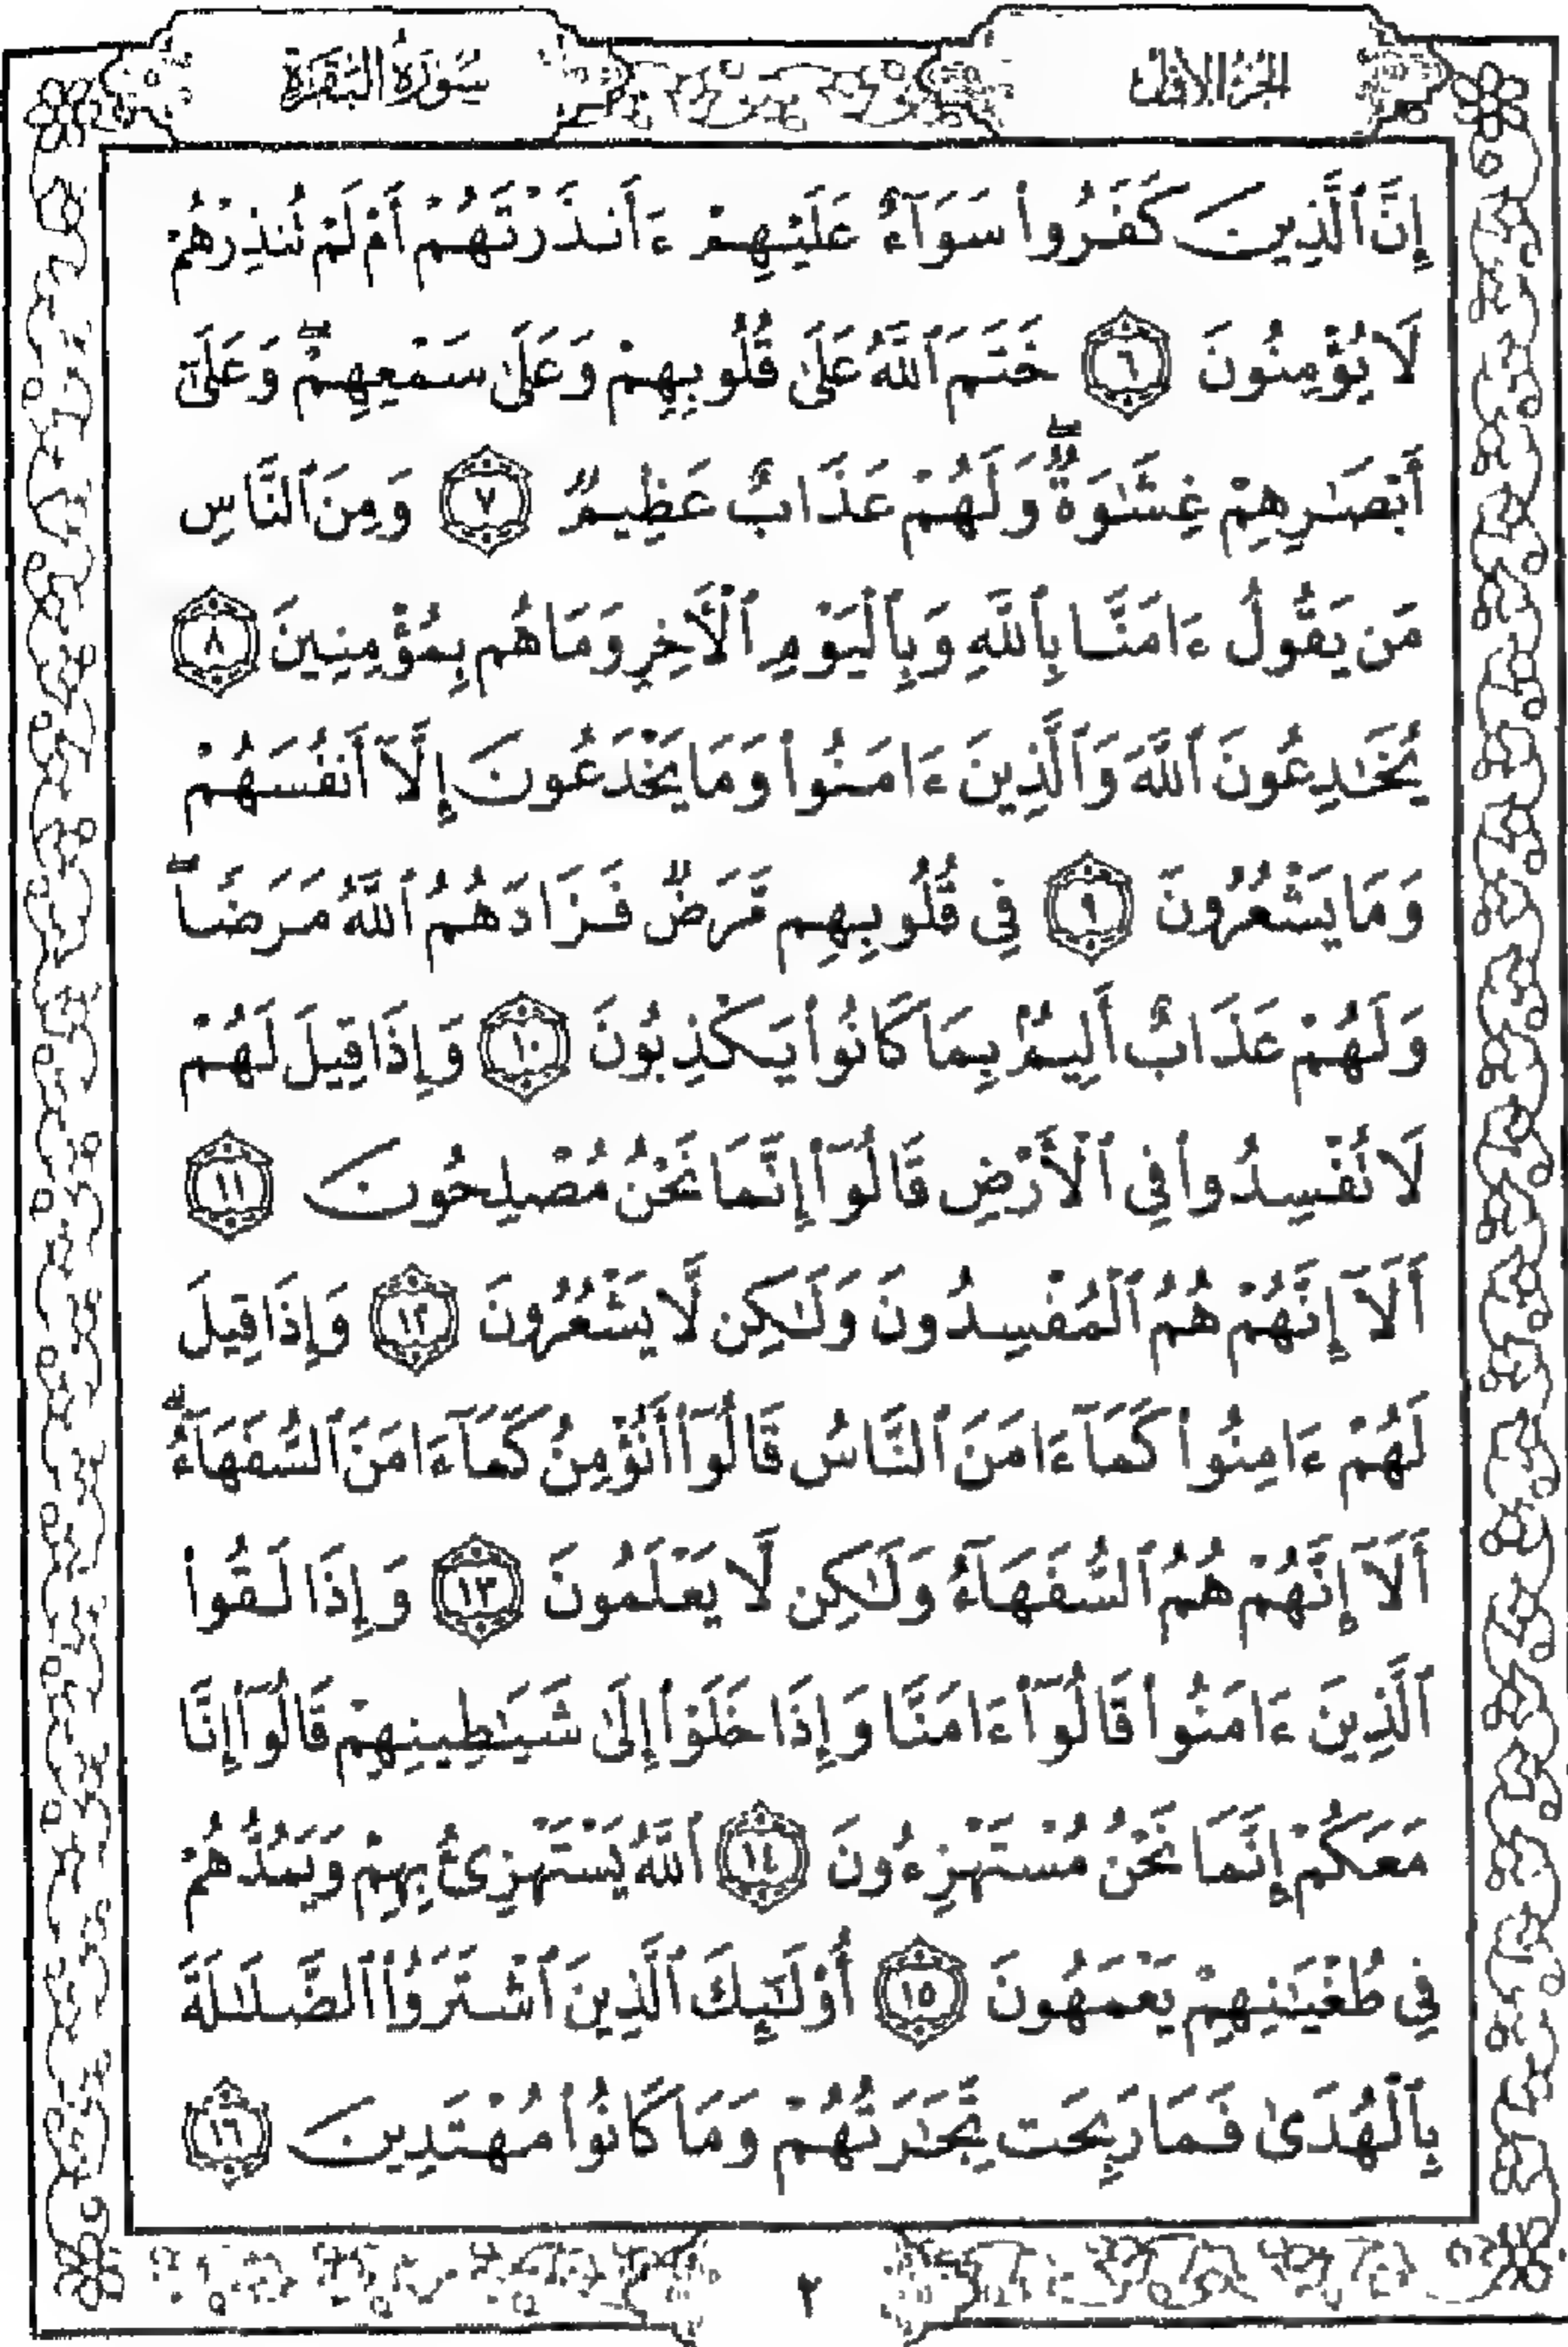 الجزء الأول
سورة البقرة
إِنَّ ٱلَّذِينَ كَفَرُوا۟ سَوَآءٌ عَلَيْهِمْ ءَأَنذَرْتَهُمْ أَمْ لَمْ تُنذِرْهُمْ
لَا يُؤْمِنُونَ ٦ خَتَمَ ٱللَّهُ عَلَىٰ قُلُوبِهِمْ وَعَلَىٰ سَمْعِهِمْ ۖ وَعَلَىٰٓ
أَبْصَـٰرِهِمْ غِشَـٰوَةٌ ۖ وَلَهُمْ عَذَابٌ عَظِيمٌ ٧ وَمِنَ ٱلنَّاسِ
مَن يَقُولُ ءَامَنَّا بِٱللَّهِ وَبِٱلْيَوْمِ ٱلْـَٔاخِرِ وَمَا هُم بِمُؤْمِنِينَ ٨
يُخَـٰدِعُونَ ٱللَّهَ وَٱلَّذِينَ ءَامَنُوا۟ وَمَا يَخْدَعُونَ إِلَّآ أَنفُسَهُمْ
وَمَا يَشْعُرُونَ ٩ فِى قُلُوبِهِم مَّرَضٌ فَزَادَهُمُ ٱللَّهُ مَرَضًا ۖ
وَلَهُمْ عَذَابٌ أَلِيمٌۢ بِمَا كَانُوا۟ يَكْذِبُونَ ١٠ وَإِذَا قِيلَ لَهُمْ
لَا تُفْسِدُوا۟ فِى ٱلْأَرْضِ قَالُوٓا۟ إِنَّمَا نَحْنُ مُصْلِحُونَ ١١
أَلَآ إِنَّهُمْ هُمُ ٱلْمُفْسِدُونَ وَلَـٰكِن لَّا يَشْعُرُونَ ١٢ وَإِذَا قِيلَ
لَهُمْ ءَامِنُوا۟ كَمَآ ءَامَنَ ٱلنَّاسُ قَالُوٓا۟ أَنُؤْمِنُ كَمَآ ءَامَنَ ٱلسُّفَهَآءُ ۗ
أَلَآ إِنَّهُمْ هُمُ ٱلسُّفَهَآءُ وَلَـٰكِن لَّا يَعْلَمُونَ ١٣ وَإِذَا لَقُوا۟
ٱلَّذِينَ ءَامَنُوا۟ قَالُوٓا۟ ءَامَنَّا وَإِذَا خَلَوْا۟ إِلَىٰ شَيَـٰطِينِهِمْ قَالُوٓا۟ إِنَّا
مَعَكُمْ إِنَّمَا نَحْنُ مُسْتَهْزِءُونَ ١٤ ٱللَّهُ يَسْتَهْزِئُ بِهِمْ وَيَمُدُّهُمْ
فِى طُغْيَـٰنِهِمْ يَعْمَهُونَ ١٥ أُو۟لَـٰٓئِكَ ٱلَّذِينَ ٱشْتَرَوُا۟ ٱلضَّلَـٰلَةَ
بِٱلْهُدَىٰ فَمَا رَبِحَت تِّجَـٰرَتُهُمْ وَمَا كَانُوا۟ مُهْتَدِينَ ١٦
٢